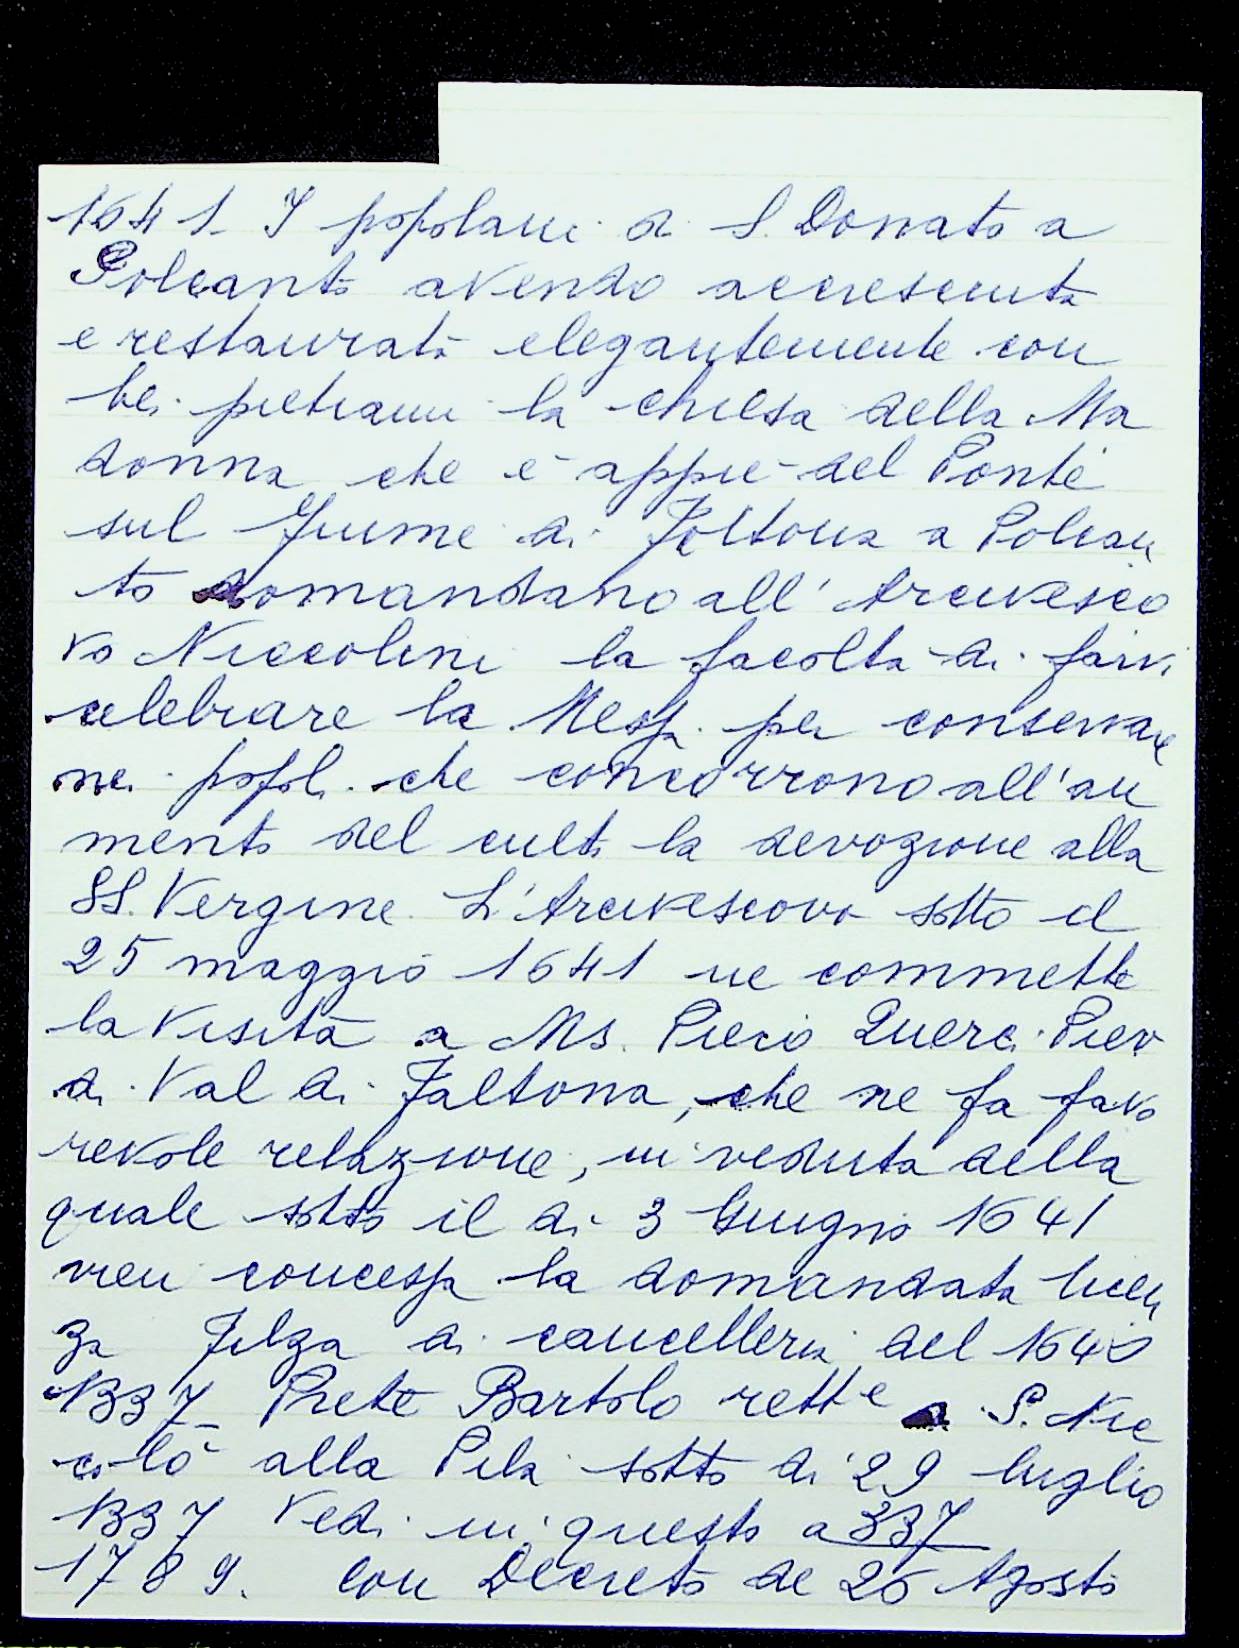 1641. I popolani di S. Donato a
Polcanto avendo accresciuta
e restaurata elegantemente con
bei pietrami la chiesa della Ma
donna che è appiè del Ponte
sul fiume di Faltona a Polcan
to domandano all'Arcivesco
vo Niccolini la facoltà di farvi
celebrare la Messa per conservare
nei popoli che concorrono all'au
mento del culto la devozione alla
SS. Vergine. L'Arcivescovo sotto il
25 maggio 1641 ne commette
la visita a Ms. Piero Querci Piev
di Val di Faltona, che ne fa favo
revole relazione, in veduta della
quale sotto il dì 3 Giugno 1641
vien concessa la domandata licen
za Filza di cancelleria del 1640
1337 Prete Bartolo rette a S. Nic
colò alla Pila sotto dì 29 luglio
1337 Vedi in questo a 337
1789. Con Decreto de 26 Agosto